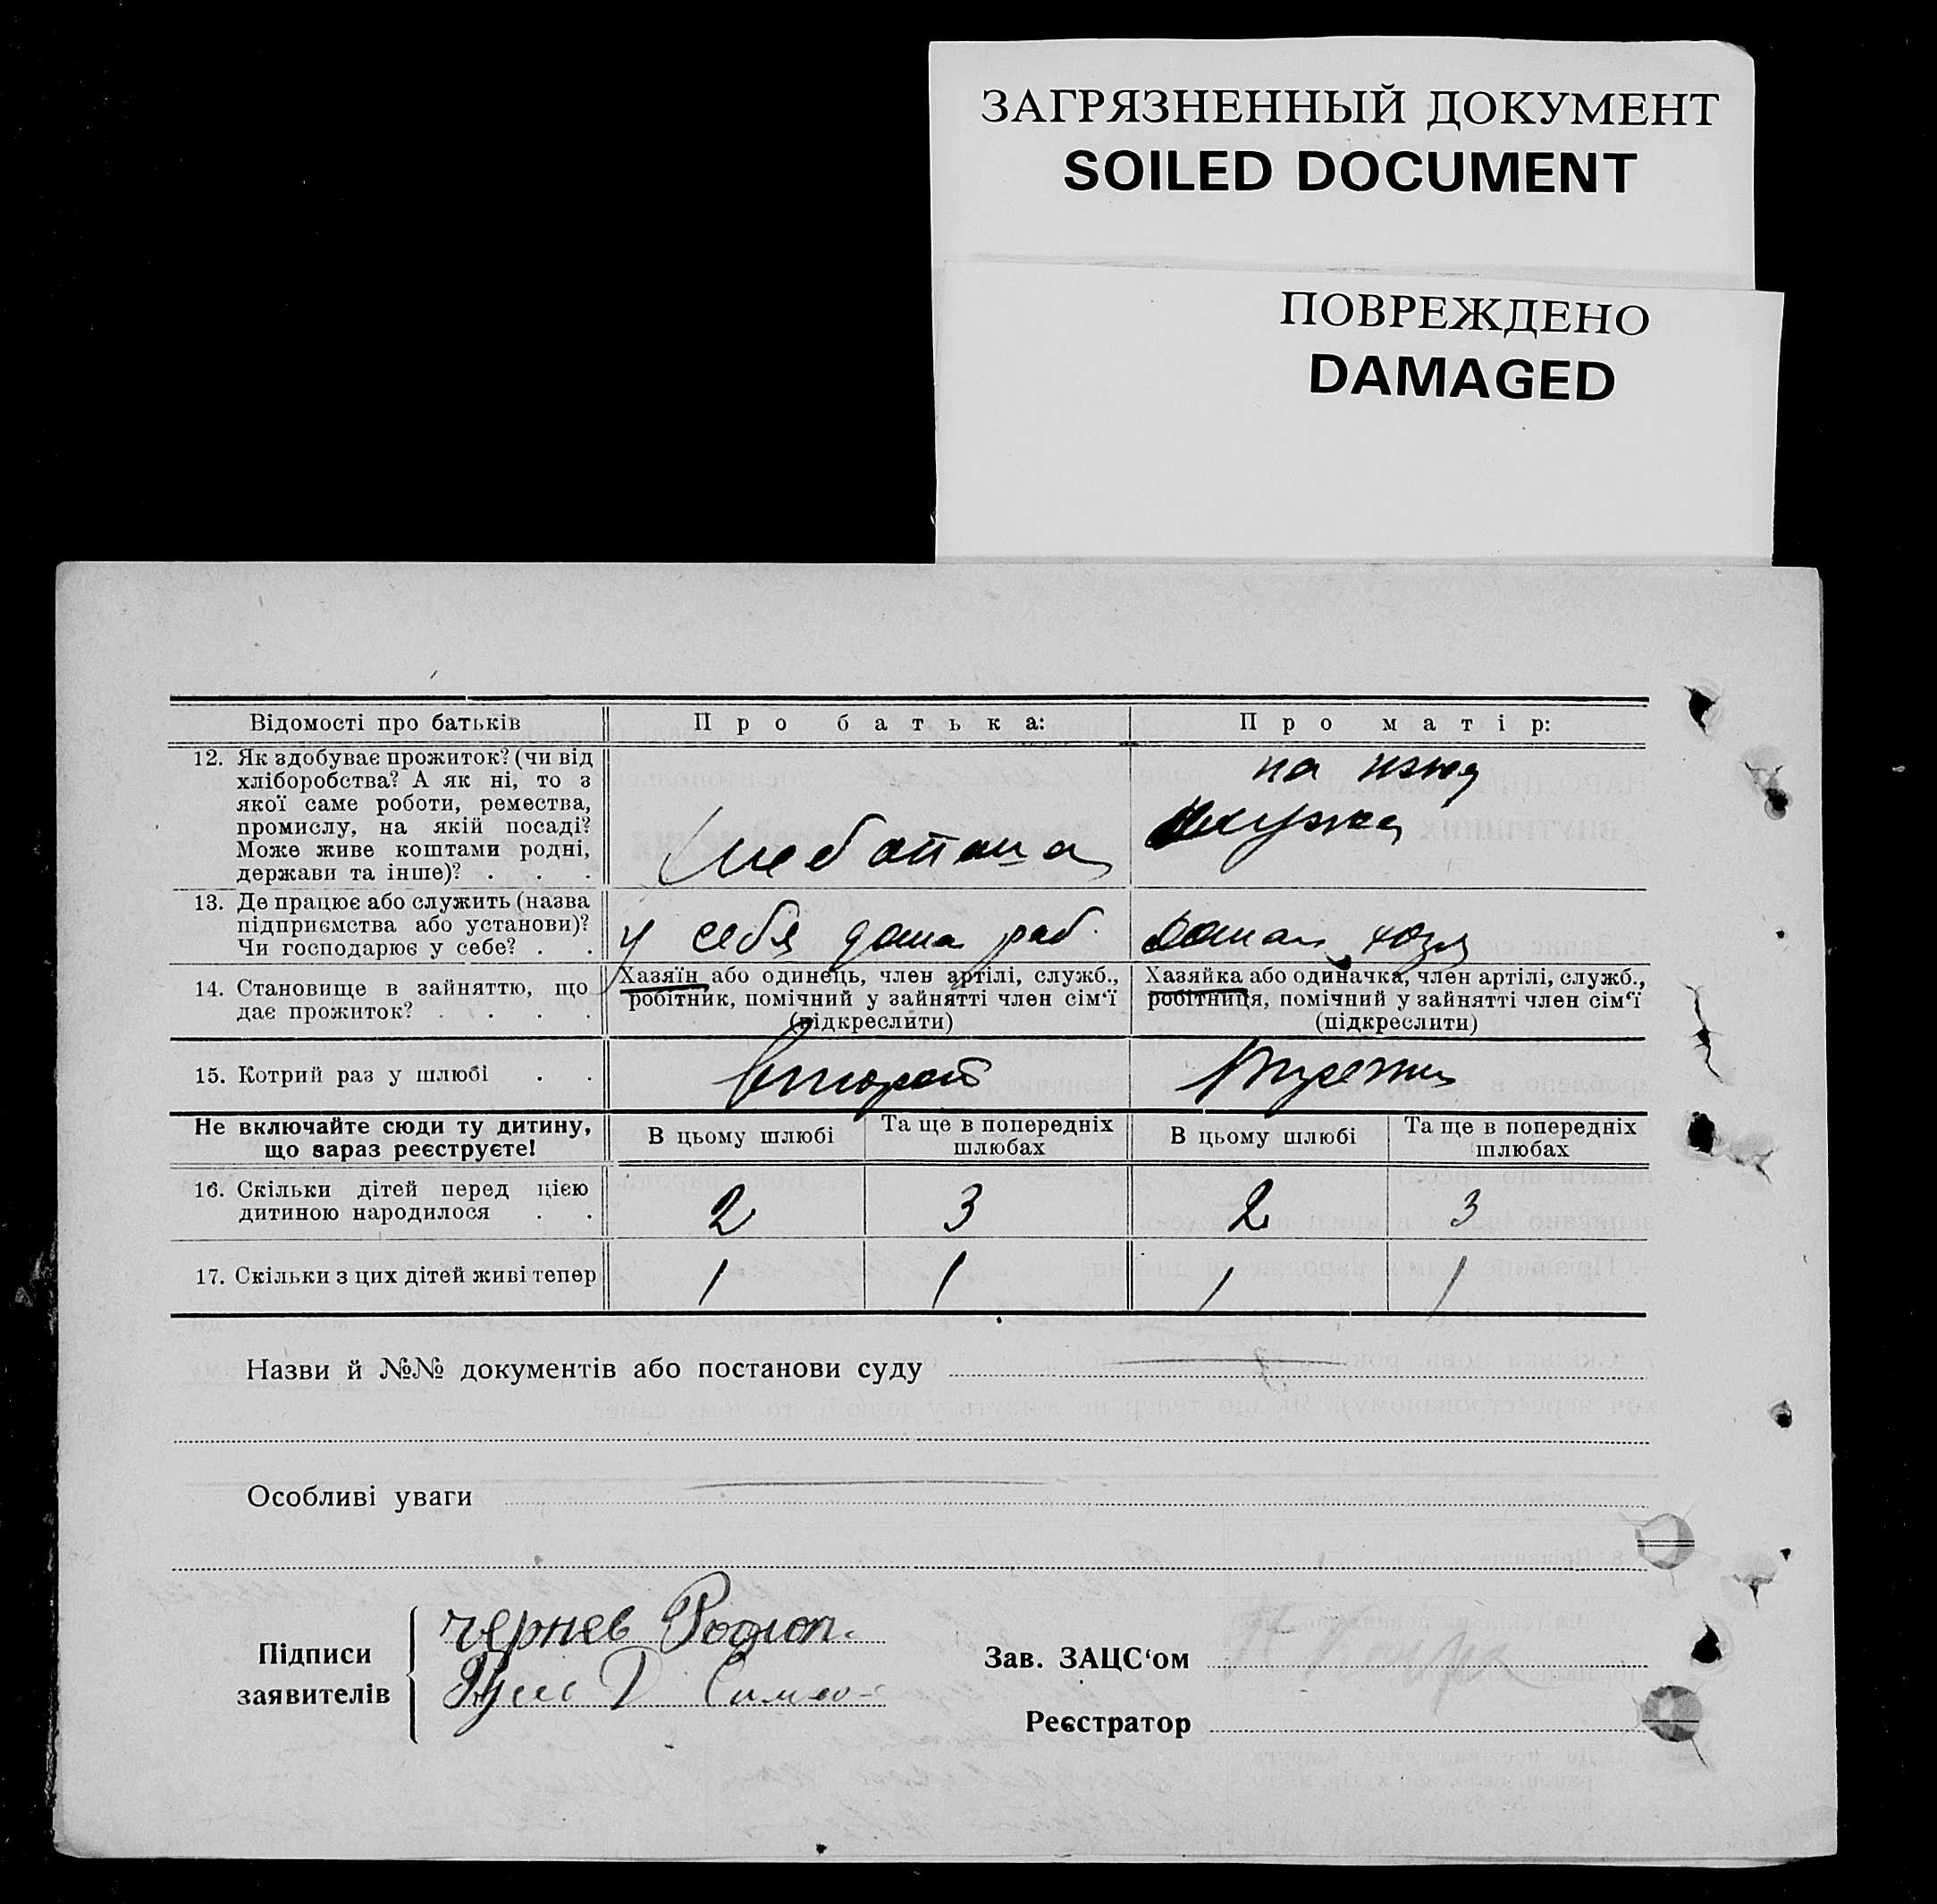 ЗАГРЯЗНЕННЫЙ ДОКУМЕНТ
SOILED DOCUMENT
ПОВРЕЖДЕНО
DAMAGED
Відомості про батьків
Про батька:
Про матір:
12. Як здобуває прожиток? (чи від
хліборобства? А як ні, то з
якої саме роботи, ремества,
промислу, на якій посаді?
Може живе коштами родні,
держави та інше)? . . .
на
13. Де працює або служить (назва
підприємства або установи)?
Чи господарює у себе? . .
у себя дома раб.
14. Становище в зайняттю, що
дає прожиток? . . . .
Хазяїн або одинець, член артілі, служб.,
робітник, помічний у зайнятті член сім'ї
(підкреслити)
Хазяйка або одиначка, член артілі, служб.,
робітниця, помічний у зайнятті член сім'ї
(підкреслити)
15. Котрий раз у шлюбі . .
второй
Не включайте сюди ту дитину,
що зараз реєструєте!
В цьому шлюбі
Та ще в попередніх
шлюбах
В цьому шлюбі
Та ще в попередніх
шлюбах
16. Скільки дітей перед цією
дитиною народилося . .
2
3
2
3
17. Скільки з цих дітей живі тепер
1
1
1
1
Назви й №№ документів або постанови суду
Особливі уваги
Підписи
заявителів
Чернев Родион.
Зав. ЗАЦС'ом
Реєстратор